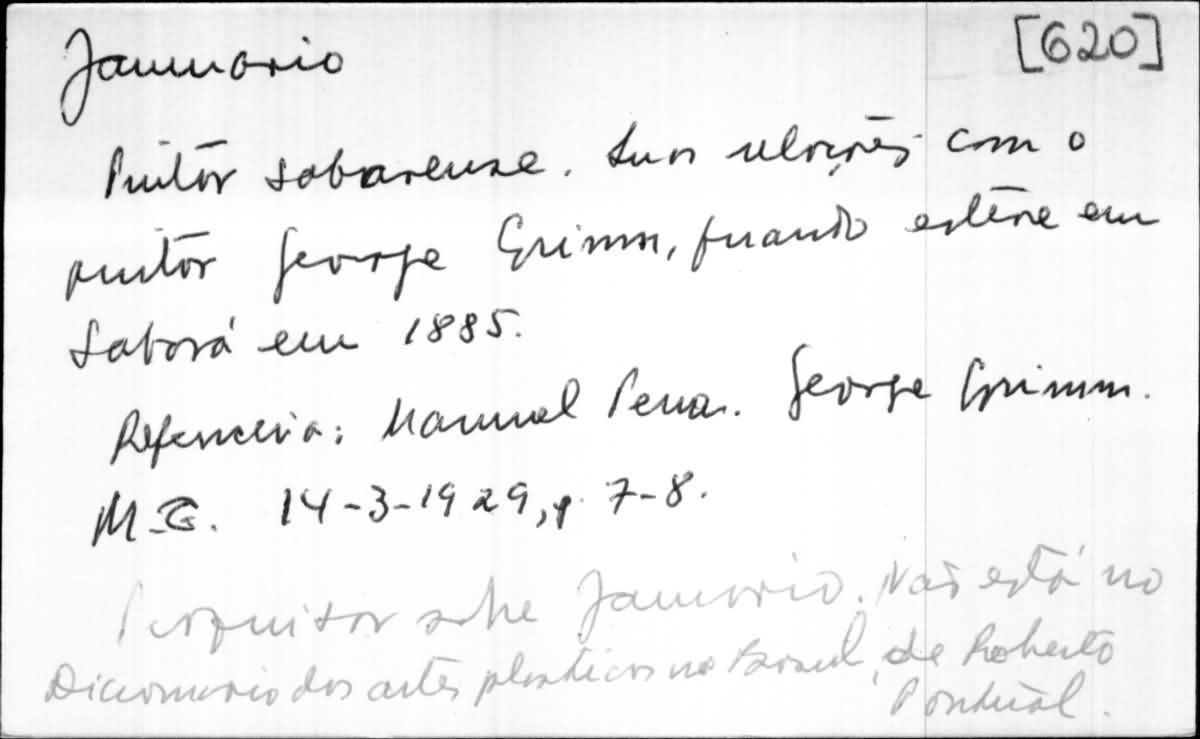 Januario
[620]
Pintor sabarense. Suas relações com o
pintor George Grimm, quando estêve em
Sabará em 1885.
Referencia: Manuel Pena. George Grimm.
M.G. 14-3-1929, p. 7-8.
Pesquisar sobre Januario. Não está no
Diccionario das artes plasticas no Brasil, de Roberto
Pontual.